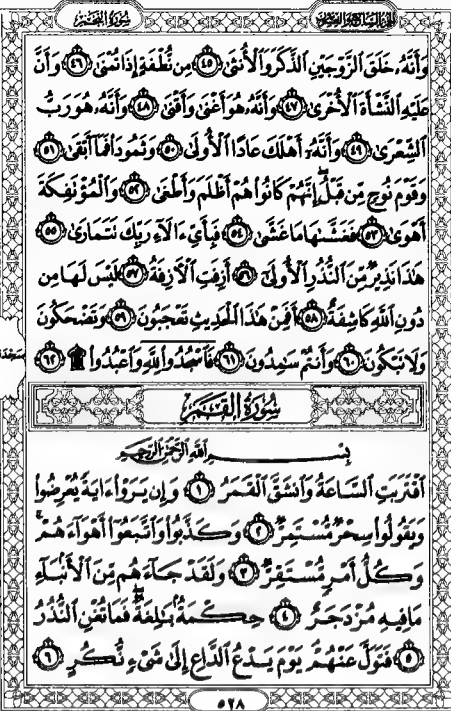 سُورَةُ القَمَر الجزء السابع والعشرون
وَأَنَّهُۥ خَلَقَ ٱلزَّوْجَيْنِ ٱلذَّكَرَ وَٱلْأُنثَىٰ ٤٥ مِن نُّطْفَةٍ إِذَا تُمْنَىٰ ٤٦ وَأَنَّ
عَلَيْهِ ٱلنَّشْأَةَ ٱلْأُخْرَىٰ ٤٧ وَأَنَّهُۥ هُوَ أَغْنَىٰ وَأَقْنَىٰ ٤٨ وَأَنَّهُۥ هُوَ رَبُّ
ٱلشِّعْرَىٰ ٤٩ وَأَنَّهُۥٓ أَهْلَكَ عَادًا ٱلْأُولَىٰ ٥٠ وَثَمُودَا۟ فَمَآ أَبْقَىٰ ٥١
وَقَوْمَ نُوحٍ مِّن قَبْلُ ۖ إِنَّهُمْ كَانُوا۟ هُمْ أَظْلَمَ وَأَطْغَىٰ ٥٢ وَٱلْمُؤْتَفِكَةَ
أَهْوَىٰ ٥٣ فَغَشَّىٰهَا مَا غَشَّىٰ ٥٤ فَبِأَىِّ ءَالَآءِ رَبِّكَ تَتَمَارَىٰ ٥٥
هَـٰذَا نَذِيرٌ مِّنَ ٱلنُّذُرِ ٱلْأُولَىٰٓ ٥٦ أَزِفَتِ ٱلْـَٔازِفَةُ ٥٧ لَيْسَ لَهَا مِن
دُونِ ٱللَّهِ كَاشِفَةٌ ٥٨ أَفَمِنْ هَـٰذَا ٱلْحَدِيثِ تَعْجَبُونَ ٥٩ وَتَضْحَكُونَ
وَلَا تَبْكُونَ ٦٠ وَأَنتُمْ سَـٰمِدُونَ ٦١ فَٱسْجُدُوا۟ لِلَّهِ وَٱعْبُدُوا۟ ۩ ٦٢
سجدة
سُورَةُ القَمَرِ
بِسْمِ ٱللَّهِ ٱلرَّحْمَـٰنِ ٱلرَّحِيمِ
ٱقْتَرَبَتِ ٱلسَّاعَةُ وَٱنشَقَّ ٱلْقَمَرُ ١ وَإِن يَرَوْا۟ ءَايَةً يُعْرِضُوا۟
وَيَقُولُوا۟ سِحْرٌ مُّسْتَمِرٌّ ٢ وَكَذَّبُوا۟ وَٱتَّبَعُوٓا۟ أَهْوَآءَهُمْ ۚ
وَكُلُّ أَمْرٍ مُّسْتَقِرٌّ ٣ وَلَقَدْ جَآءَهُم مِّنَ ٱلْأَنۢبَآءِ
مَا فِيهِ مُزْدَجَرٌ ٤ حِكْمَةٌۢ بَـٰلِغَةٌ ۖ فَمَا تُغْنِ ٱلنُّذُرُ
٥ فَتَوَلَّ عَنْهُمْ ۘ يَوْمَ يَدْعُ ٱلدَّاعِ إِلَىٰ شَىْءٍ نُّكُرٍ ٦
٥٢٨